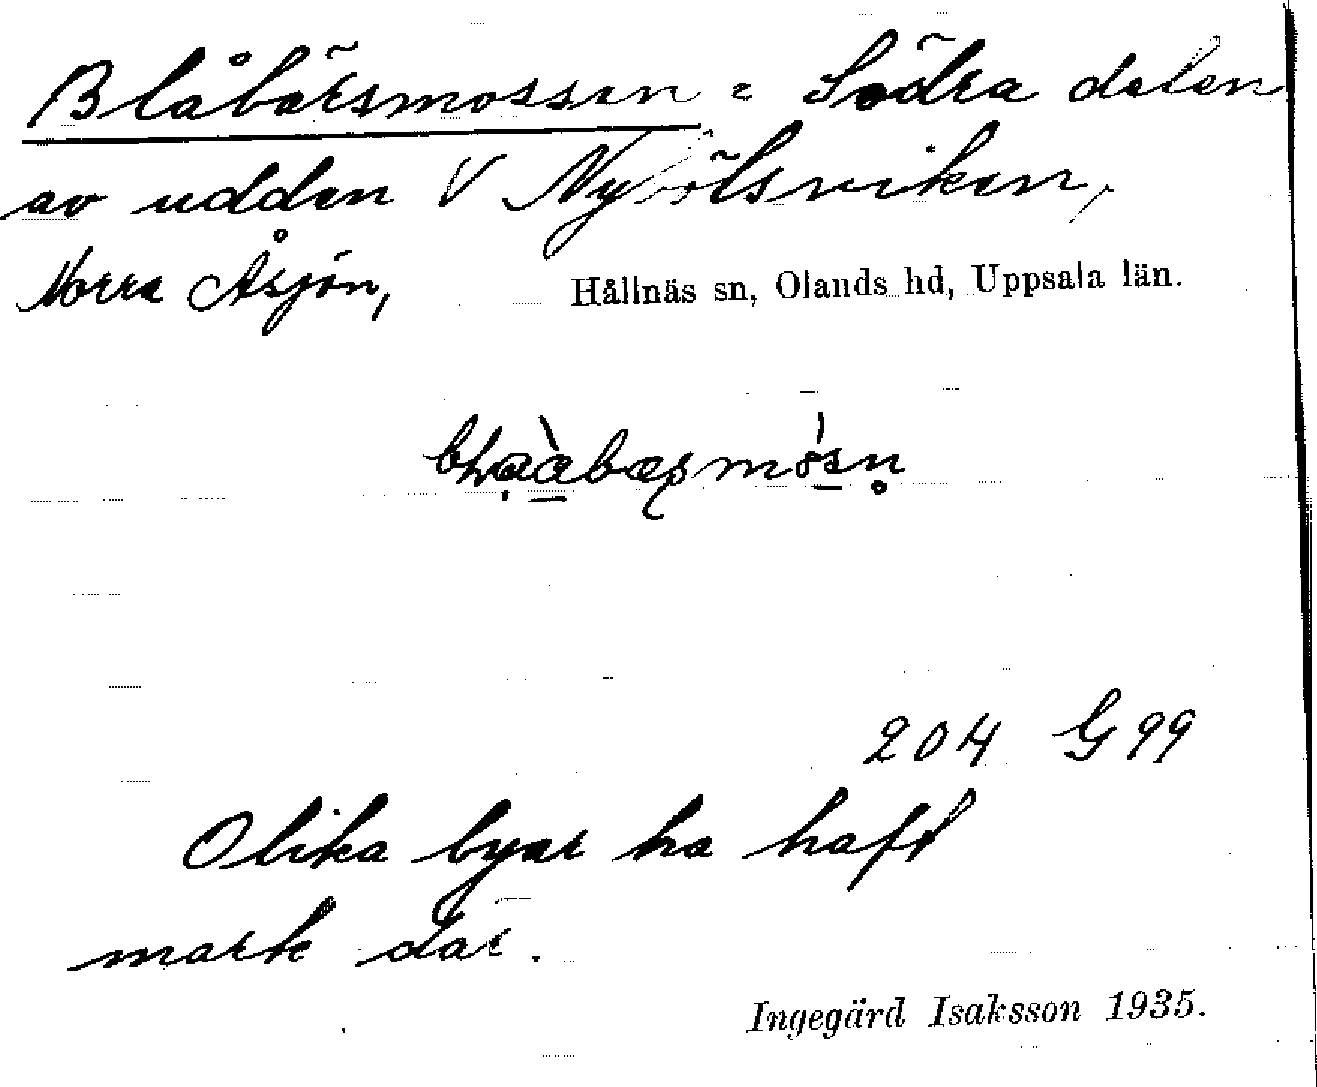 Blåbärsmossen = Södra delen
av udden V Nybölsviken,
Norra Åsjön, Hållnäs sn, Olands hd, Uppsala län.
204 G 99
Olika byar ha haft
mark där.
Ingegärd Isaksson 1935.